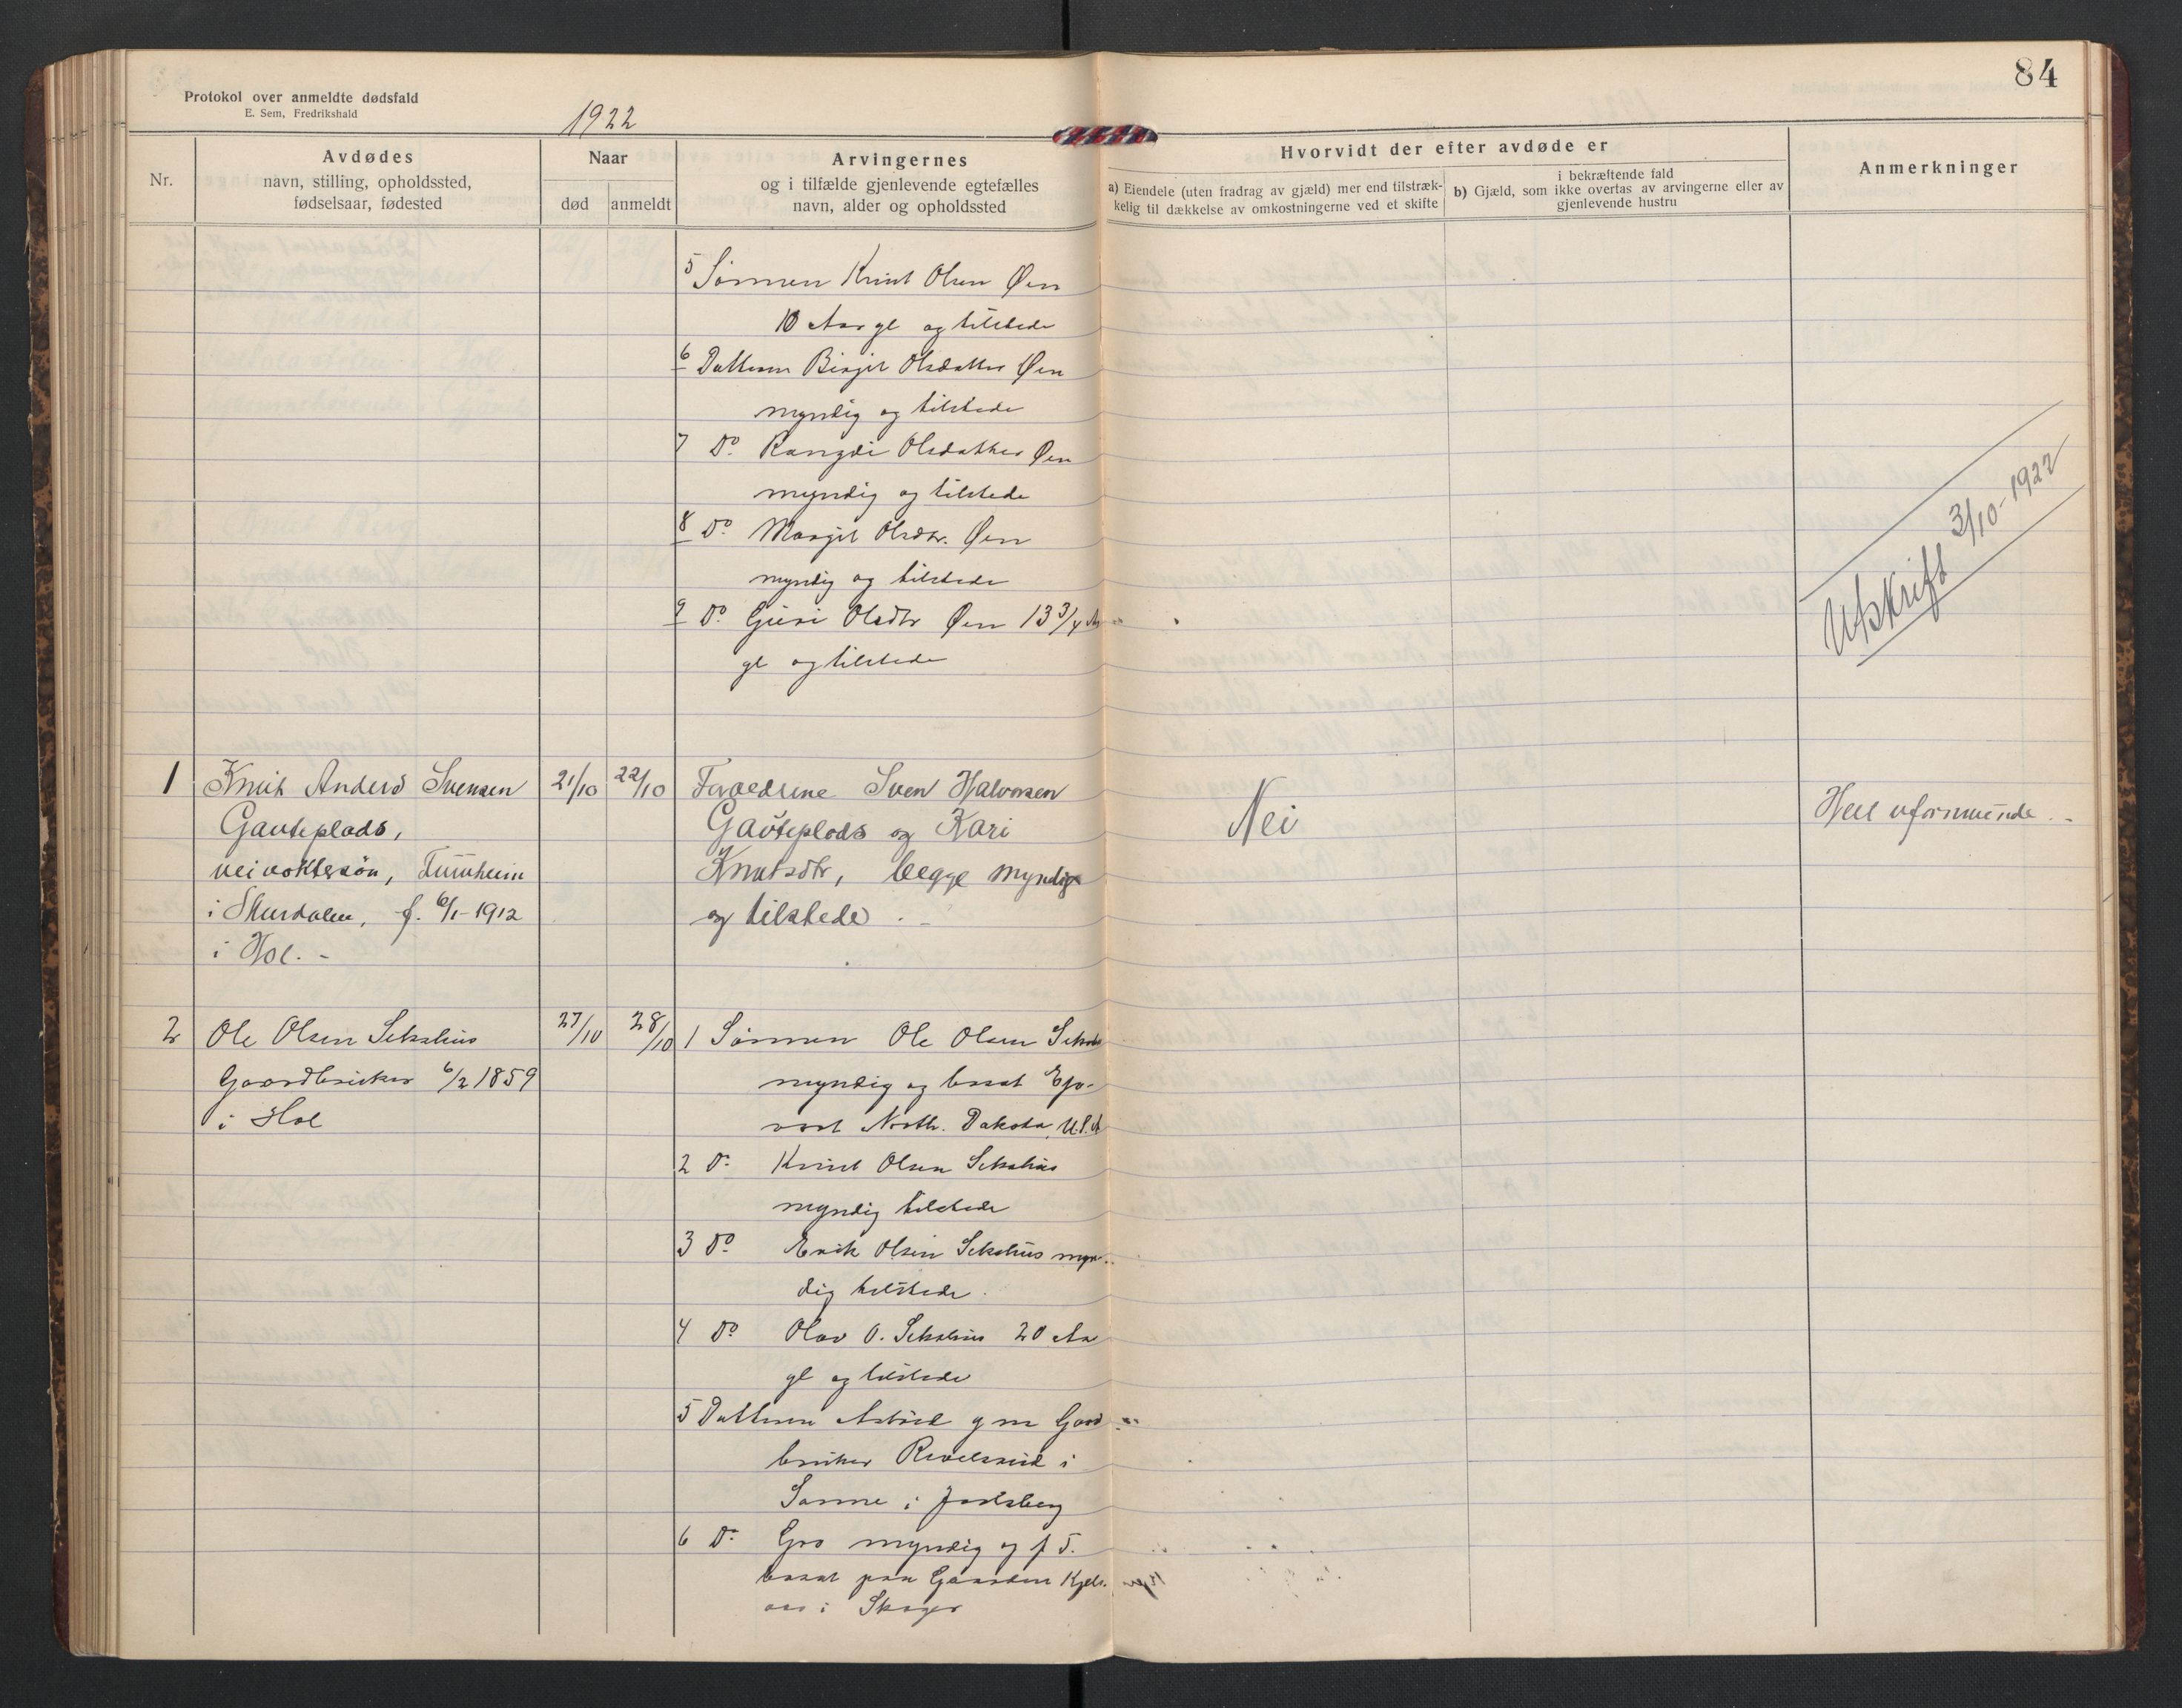 84
Protokol over anmeldte dødsfald
E. Sem, Fredrikshald
1922
Nr.
Avdødes
navn, stilling, opholdssted,
fødselsaar, fødested
Naar
død
anmeldt
Arvingernes
og i tilfælde gjenlevende egtefælles
navn, alder og opholdssted
Hvorvidt der efter avdøde er
a) Eiendele (uten fradrag av gjæld) mer end tilstræk-
kelig til dækkelse av omkostningerne ved et skifte
i bekræftende fald
b) Gjæld, som ikke overtas av arvingerne eller av
gjenlevende hustru
Anmerkninger
5 Sønnen Knut Olsen Øen
10 Aar gl og tilstede
6 Datteren Birgit Olsdatter Øen
myndig og tilstede
7 Do. Rangdi Olsdatter Øen
myndig og tilstede
8 Do. Margit Olsdtr. Øen
myndig og tilstede
9 Do Guri Olsdtr Øen 13 3/4 Aar
gl og tilstede
Utskrift 3/10-1922
1 Knut Anders Svensen
Gauteplads,
veivoktersøn, Tuiuheim
i Skurdalen, f. 6/1-1912
i Hol. -
21/10 22/10
Forældrene Sven Halvorsen
Gauteplads og Kari
Knutsdtr, begge myndige
og tilstede. -
Nei
Helt uformuende. -
2 Ole Olsen Sekshus
Gaardbruker 6/2 1859
i Hol
27/10 28/10
1 Sønnen Ole Olsen Sekshus
myndig og bosat
North. Dakota, U.S.A
2 Do. Knut Olsen Sekshus
myndig tilstede
3 Do. Erik Olsen Sekshus myn-
dig tilstede.
4 Do Olav O. Sekshus 20 Aar
gl og tilstede
5 Datteren Astrid g m Gaard-
bruker i
i Jarlsberg
6 Do. Gro myndig og p T.
bosat paa Gaarden Kjel-
aas i Skoger